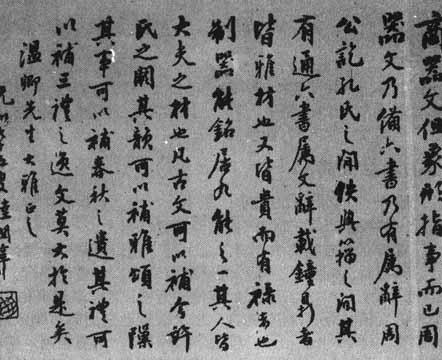 商器文但象形指事而已周
器文乃備六書乃有属辭周
公訖孔氏之間佚與籀之間其
有通六書属文辭載鐘鼎者
皆雅材也又皆貴而有禄者也
制器能銘居九能之一其人皆
大夫之材也凡古文可以補今許
氏之闕其韻可以補雅頌之隟
其事可以補春秋之遺其禮可
以補王禮之逸文莫大於是矣
温卿先生大雅正之
陸潤庠